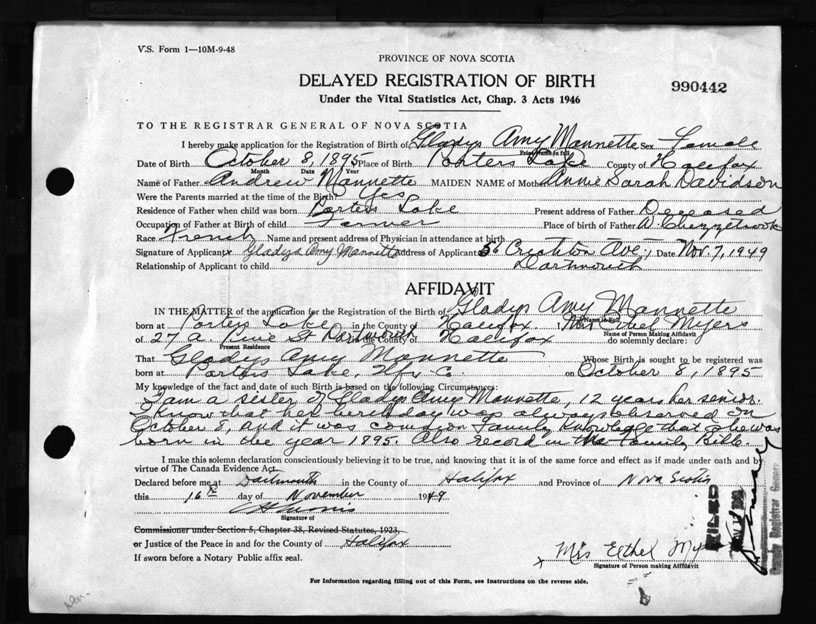 V.S. Form 1—10M-9-48
PROVINCE OF NOVA SCOTIA
DELAYED REGISTRATION OF BIRTH
990442
Under the Vital Statistics Act, Chap. 3 Acts 1946
TO THE REGISTRAR GENERAL OF NOVA SCOTIA
I hereby make application for the Registration of Birth of Gladys Amy Mannette Sex Female
Date of Birth October 8, 1895 Place of Birth Porters Lake County of Halifax
Month Date Year
Name of Father Andrew Mannette MAIDEN NAME of Mother Annie Sarah Davidson
Were the Parents married at the time of the Birth Yes
Residence of Father when child was born Porters Lake Present address of Father Deceased
Occupation of Father at Birth of child Farmer Place of birth of Father W. Chezzetcook
Race French Name and present address of Physician in attendance at birth
Signature of Applicant x Gladys Amy Mannette Address of Applicant 56 Crichton Ave., Date Nov. 7, 1949
Relationship of Applicant to child Dartmouth
AFFIDAVIT
IN THE MATTER of the application for the Registration of the Birth of Gladys Amy Mannette
born at Porters Lake in the County of Halifax. I Mrs Ethel Myers
Name of Person Making Affidavit
of 27 a. Pine St Dartmouth the County of Halifax do solemnly declare:
Present Residence
That Gladys Amy Mannette Whose Birth is sought to be registered was
born at Porters Lake, Hfx. Co. on October 8, 1895
My knowledge of the fact and date of such Birth is based on the following Circumstances:
I am a sister of Gladys Amy Mannette, 12 years her senior.
I know that her birthday was always observed on
October 8, and it was common family knowledge that she was
born in the year 1895. Also record in the family Bible.
I make this solemn declaration conscientiously believing it to be true, and knowing that it is of the same force and effect as if made under oath and by
virtue of The Canada Evidence Act.
Declared before me at Dartmouth in the County of Halifax and Province of Nova Scotia
this 16th day of November 1949
Signature of
Commissioner under Section 5, Chapter 38, Revised Statutes, 1923,
or Justice of the Peace in and for the County of Halifax
If sworn before a Notary Public affix seal.
x Mrs Ethel My
Signature of Person making Affidavit
FILED
Deputy Registrar General
For Information regarding filling out of this Form, see Instructions on the reverse side.